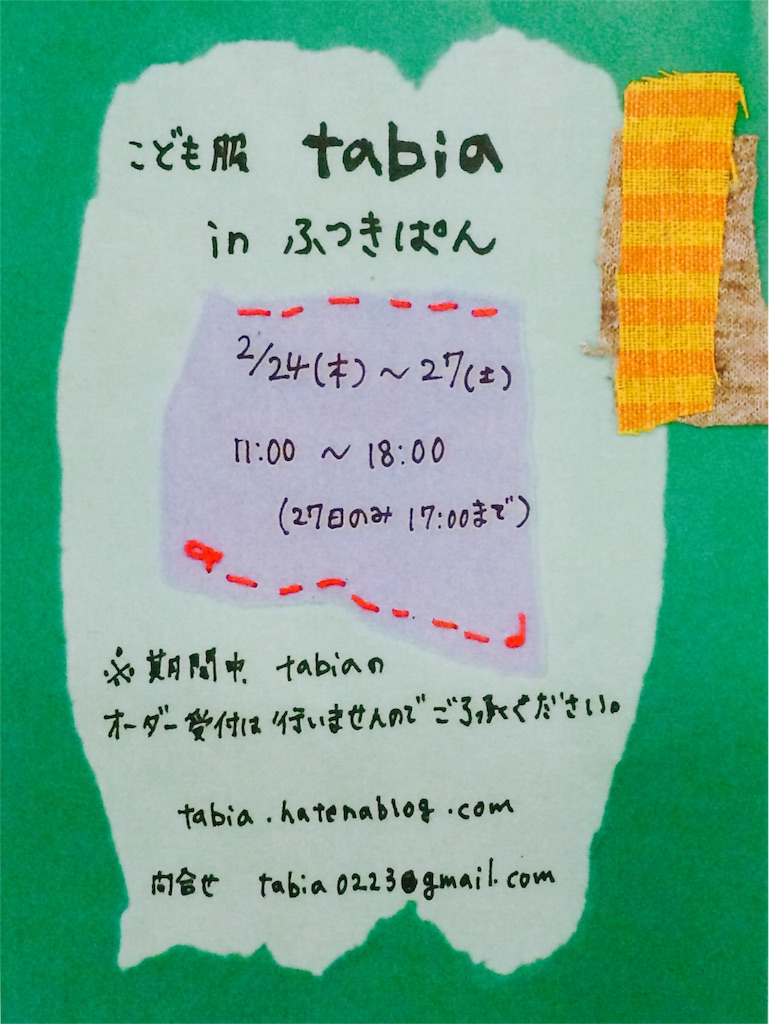 こども服 tabia
in ふつきぱん
2/24(木)～27(土)
11:00 ～ 18:00
(27日のみ 17:00まで)
※期間中 tabiaの
オーダー受付は行いませんのでご了承ください。
tabia.hatenablog.com
問合せ tabia0223@gmail.com